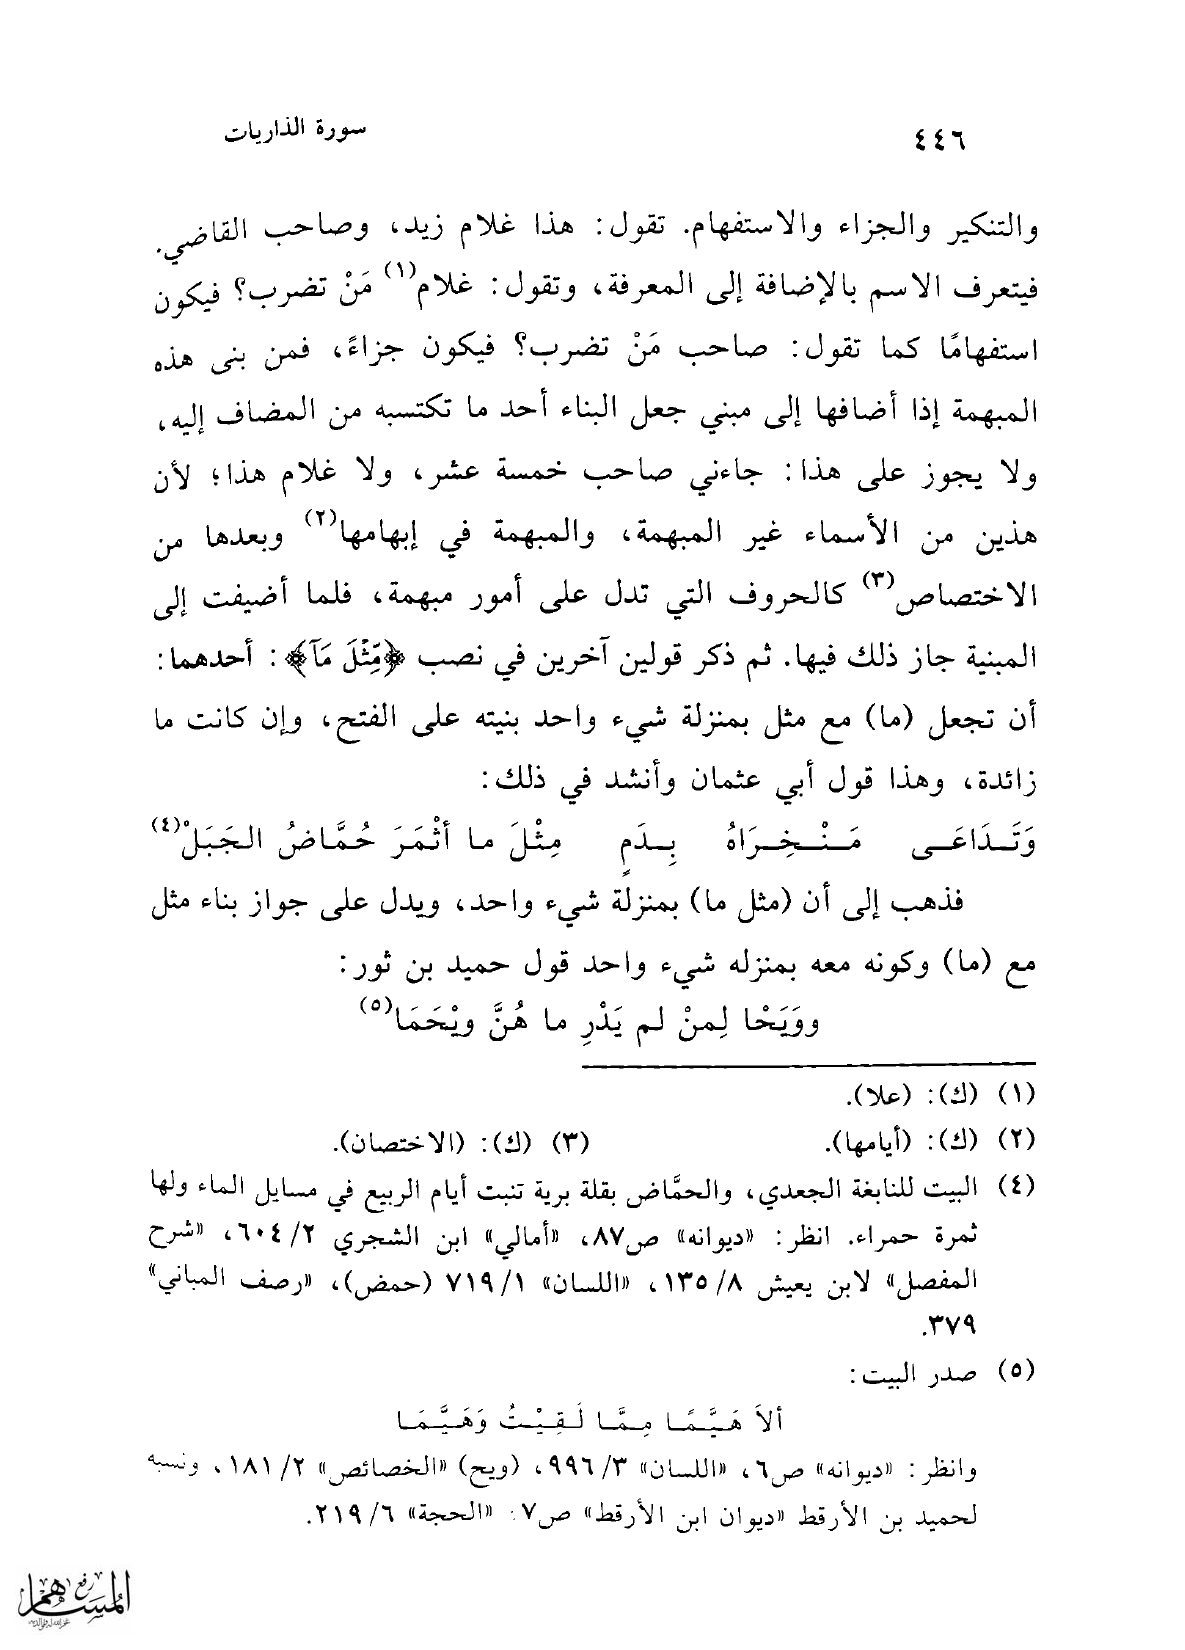 ٤٤٦
سورة الذاريات
والتنكير والجزاء والاستفهام. تقول: هذا غلام زيد، وصاحب القاضي.
فيتعرف الاسم بالإضافة إلى المعرفة، وتقول: غلام(١) مَنْ تضرب؟ فيكون
استفهامًا كما تقول: صاحب مَنْ تضرب؟ فيكون جزاءً، فمن بنى هذه
المبهمة إذا أضافها إلى مبني جعل البناء أحد ما تكتسبه من المضاف إليه،
ولا يجوز على هذا: جاءني صاحب خمسة عشر، ولا غلام هذا؛ لأن
هذين من الأسماء غير المبهمة، والمبهمة في إبهامها(٢) وبعدها من
الاختصاص(٣) كالحروف التي تدل على أمور مبهمة، فلما أضيفت إلى
المبنية جاز ذلك فيها. ثم ذكر قولين آخرين في نصب ﴿مِّثْلَ مَآ﴾: أحدهما:
أن تجعل (ما) مع مثل بمنزلة شيء واحد بنيته على الفتح، وإن كانت ما
زائدة، وهذا قول أبي عثمان وأنشد في ذلك:
وَتَـدَاعَـى مَـنْـخِـرَاهُ بِـدَمٍ مِثْلَ ما أثْمَرَ حُمَّاضُ الجَبَلْ(٤)
فذهب إلى أن (مثل ما) بمنزلة شيء واحد، ويدل على جواز بناء مثل
مع (ما) وكونه معه بمنزله شيء واحد قول حميد بن ثور:
ووَيَحْا لِمنْ لم يَدْرِ ما هُنَّ ويْحَمَا(٥)
(١) (ك): (علا).
(٢) (ك): (أيامها).
(٣) (ك): (الاختصان).
(٤) البيت للنابغة الجعدي، والحمَّاض بقلة برية تنبت أيام الربيع في مسايل الماء ولها
ثمرة حمراء. انظر: «ديوانه» ص٨٧، «أمالي» ابن الشجري ٢/ ٦٠٤، «شرح
المفصل» لابن يعيش ٨/ ١٣٥، «اللسان» ١/ ٧١٩ (حمض)، «رصف المباني»
٣٧٩.
(٥) صدر البيت:
ألاَ هَـيَّـمًـا مِـمَّـا لَـقِـيْـتُ وَهَـيَّـمَـا
وانظر: «ديوانه» ص٦، «اللسان» ٣/ ٩٩٦، (ويح) «الخصائص» ٢/ ١٨١، ونسبه
لحميد بن الأرقط «ديوان ابن الأرقط» ص٧: «الحجة» ٦/ ٢١٩.